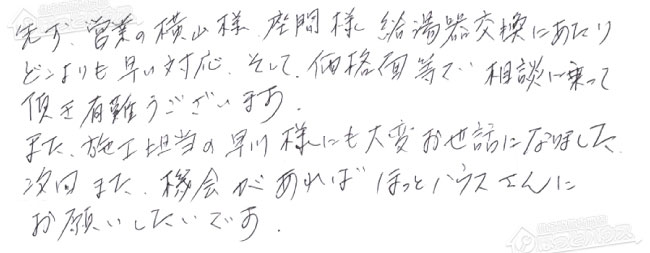 先ず、営業の横山様、座間様、給湯器交換にあたり
どこよりも早い対応、そして、価格面等で相談に乗って
頂き有難うございます。
また、施工担当の早川様にも大変お世話になりました。
次回また、機会があればほっとハウスさんに
お願いしたいです。